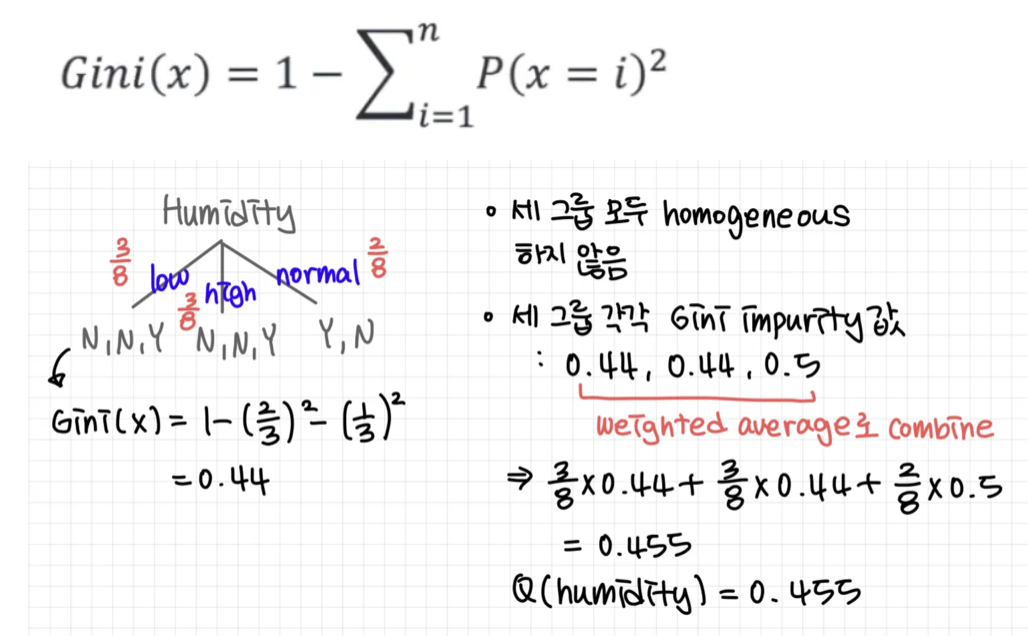 Gini(x) = 1 − ∑ⁿᵢ₌₁ P(x = i)²
Humidity
3/8 low 3/8 high normal 2/8
N,N,Y N,N,Y Y,N
Gini(x) = 1-(2/3)²-(1/3)²
= 0.44
◦ 세 그룹 모두 homogeneous
하지 않음
◦ 세 그룹 각각 Gini impurity 값
: 0.44, 0.44, 0.5
weighted average로 combine
⇒ 3/8 x 0.44 + 3/8 x 0.44 + 2/8 x 0.5
= 0.455
Q(humidity) = 0.455